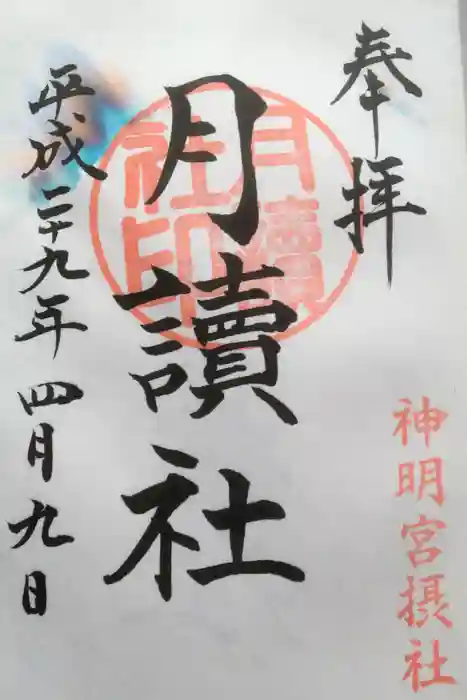 奉拝
神明宮摂社
月讀社
月讀社印
平成二十九年四月九日